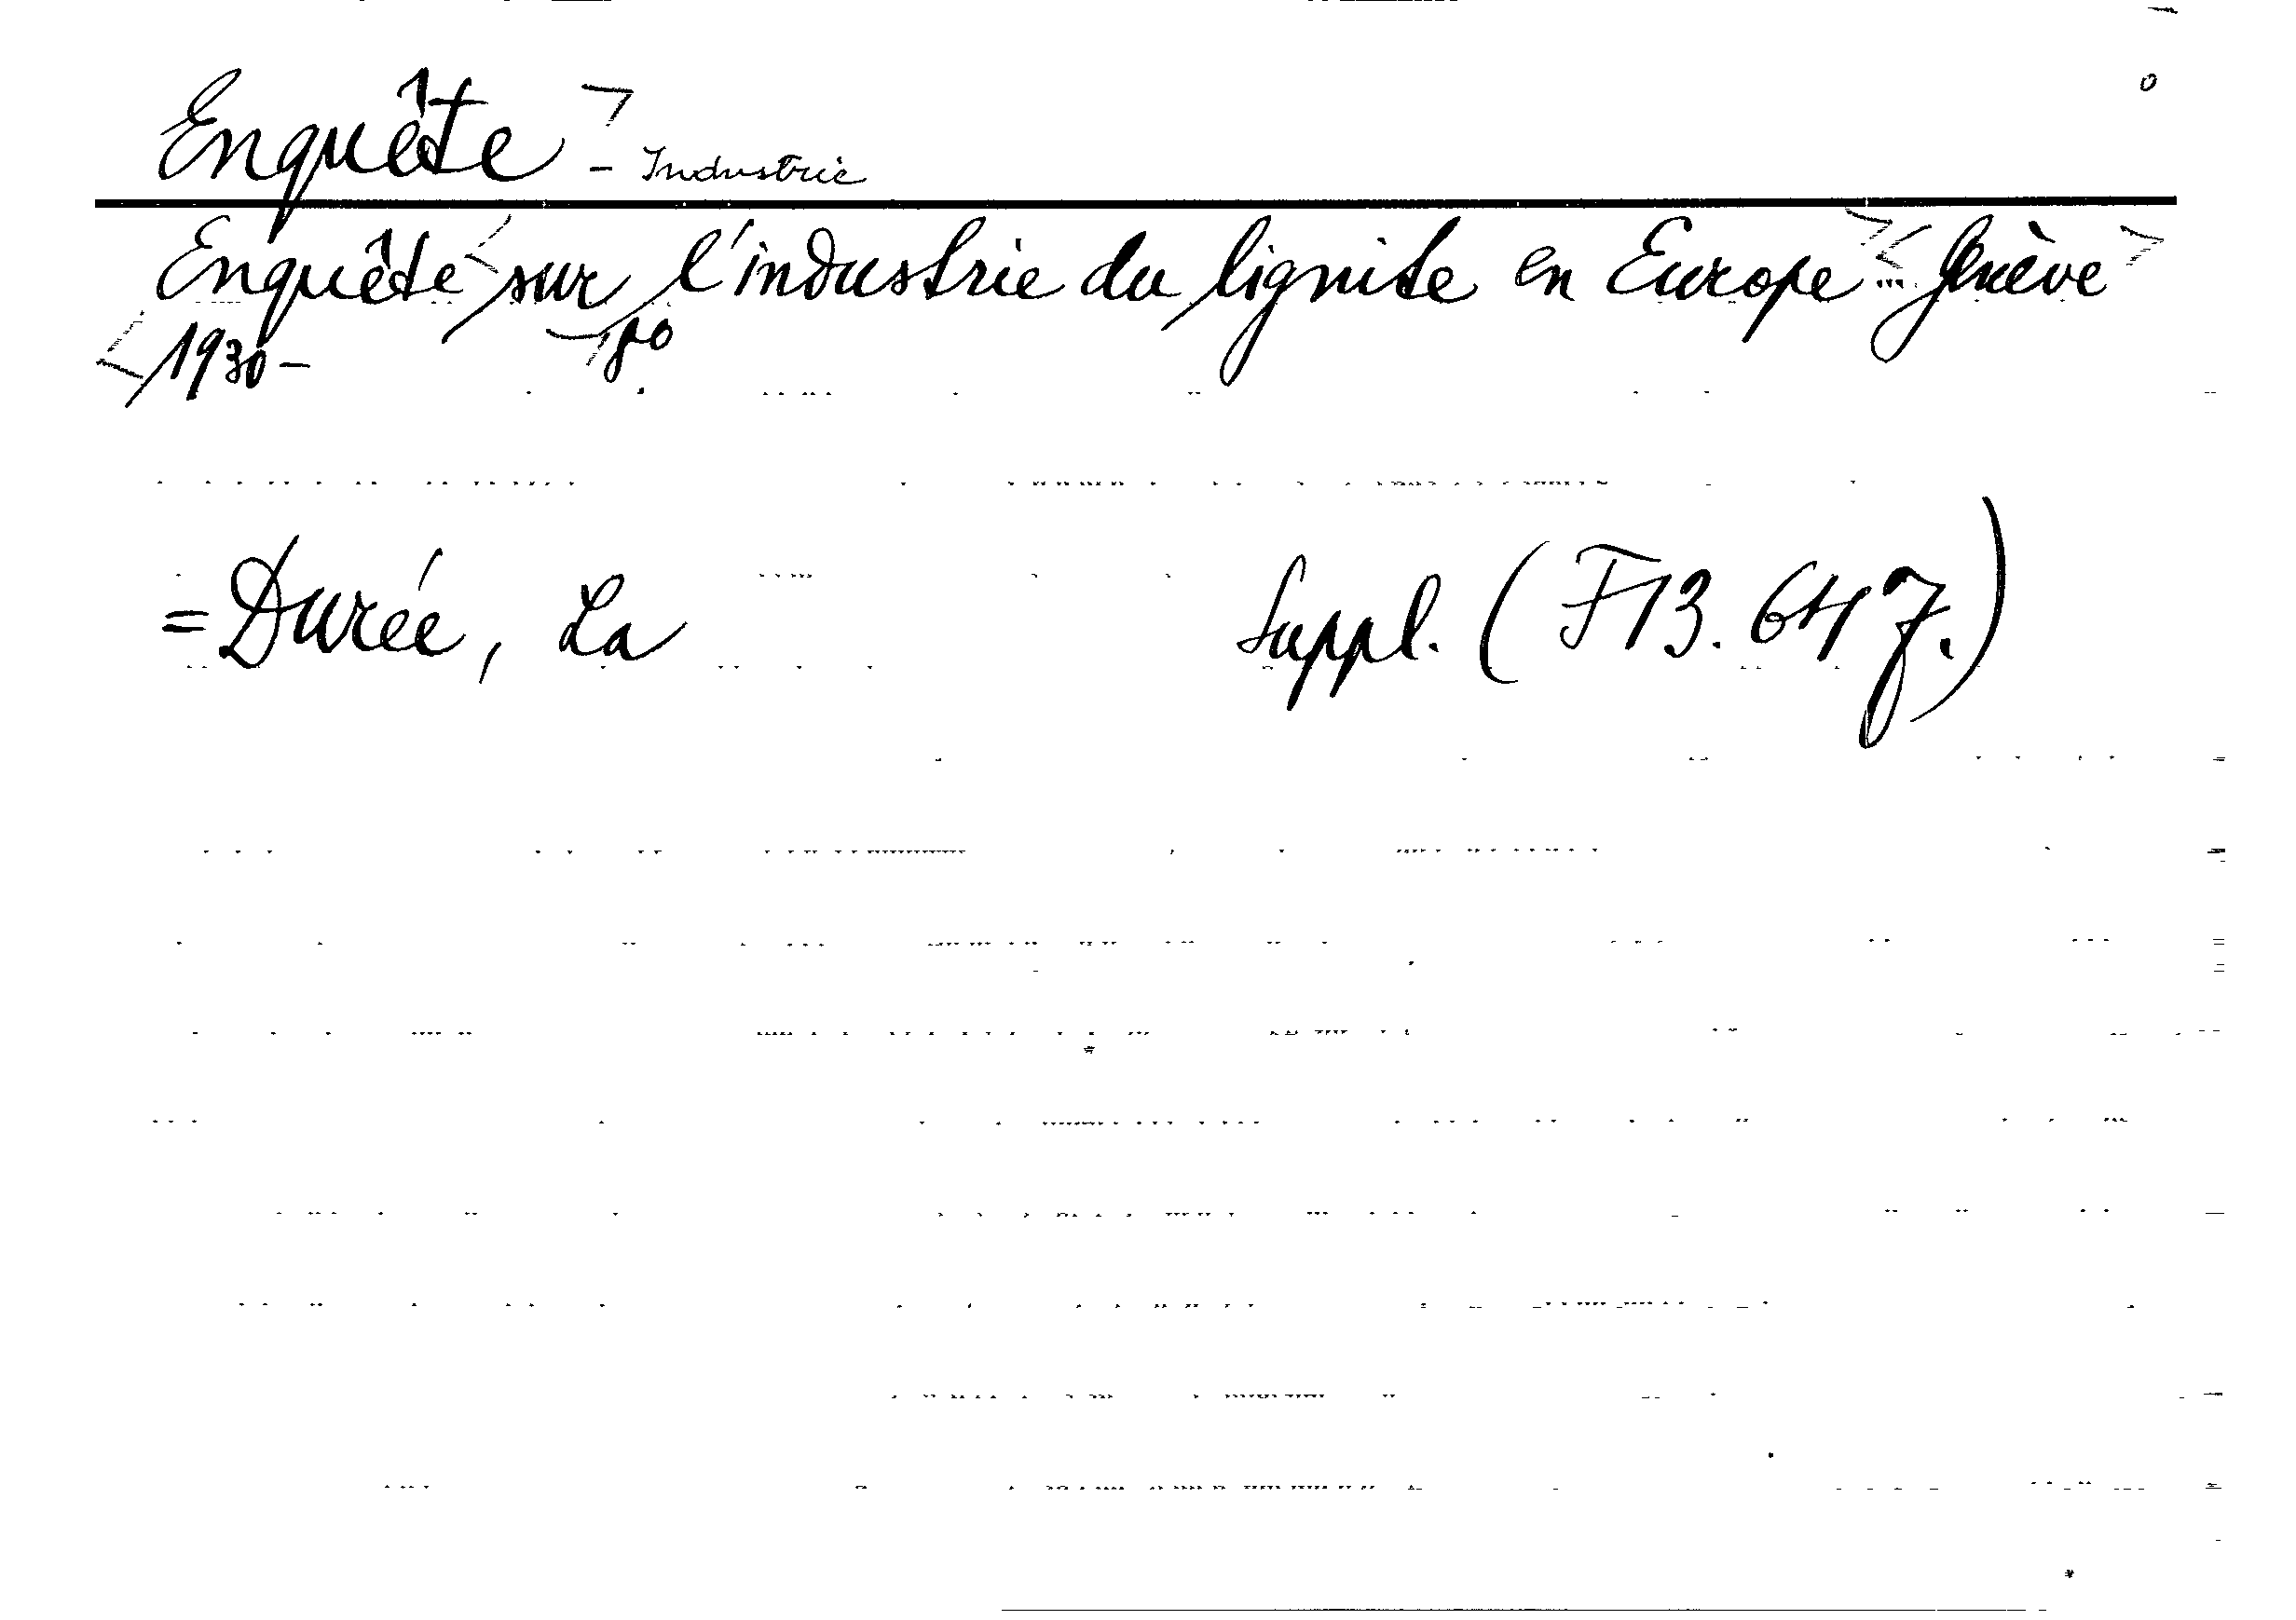 Enquête - Industrie
Enquête sur l'industrie du lignite en Europe ... Genève
1930 - 8o
= Durée, La Suppl. (F13.647.)